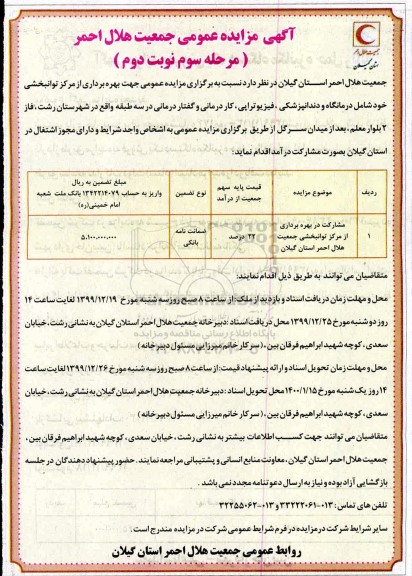 آگهی مزایده عمومی جمعیت هلال احمر
( مرحله سوم نوبت دوم )
جمعیت هلال احمر استان گیلان در نظر دارد نسبت به برگزاری مزایده عمومی جهت بهره برداری از مرکز توانبخشی
خود شامل درمانگاه و دندانپزشکی ، فیزیوتراپی ، کار درمانی و گفتار درمانی در سه طبقه واقع در شهرستان رشت ، فاز
۲ بلوار معلم، بعد از میدان سرگل از طریق برگزاری مزایده عمومی به اشخاص واجد شرایط و دارای مجوز اشتغال در
استان گیلان بصورت مشارکت در آمد اقدام نماید:
ردیف
موضوع مزایده
قیمت پایه سهم جمعیت از درآمد
نوع تضمین
مبلغ تضمین به ریال
واریز به حساب ۱۳۴۲۲۱۴۰۷۹ بانک ملت شعبه
امام خمینی(ره)
۱
مشارکت در بهره برداری
از مرکز توانبخشی جمعیت
هلال احمر استان گیلان
۲۲ درصد
ضمانت نامه
بانکی
۵،۱۰۰،۰۰۰،۰۰۰
متقاضیان می توانند به طریق ذیل اقدام نمایند:
محل و مهلت زمان دریافت اسناد و بازدید از ملک :از ساعت ۸ صبح روز سه شنبه مورخ ۱۳۹۹/۱۲/۱۹ لغایت ساعت ۱۴
روز دوشنبه مورخ ۱۳۹۹/۱۲/۲۵ محل دریافت اسناد : دبیرخانه جمعیت هلال احمر استان گیلان به نشانی رشت ، خیابان
سعدی ، کوچه شهید ابراهیم فرقان بین ، (سرکار خانم میرزایی مسئول دبیرخانه )
محل و مهلت زمان تحویل اسناد و ارائه پیشنهاد قیمت: از ساعت ۸ صبح روز سه شنبه مورخ ۱۳۹۹/۱۲/۲۶ لغایت ساعت
۱۴ روز یک شنبه مورخ ۱۴۰۰/۱/۱۵ محل تحویل اسناد : دبیرخانه جمعیت هلال احمر استان گیلان به نشانی رشت ، خیابان
سعدی ، کوچه شهید ابراهیم فرقان بین ، (سرکار خانم میرزایی مسئول دبیرخانه )
متقاضیان می توانند جهت کسب اطلاعات بیشتر به نشانی رشت ، خیابان سعدی ، کوچه شهید ابراهیم فرقان بین ،
جمعیت هلال احمر استان گیلان ، معاونت منابع انسانی و پشتیبانی مراجعه نمایند. حضور پیشنهاد دهندگان در جلسه
بازگشایی آزاد بوده و نیاز به ارسال دعوتنامه مجدد نمی باشد .
تلفن های تماس : ۰۱۳-۳۳۲۲۲۰۶۱ و ۰۱۳-۳۲۲۵۵۰۶۲
سایر شرایط شرکت در مزایده در فرم شرایط عمومی شرکت در مزایده مندرج است :
روابط عمومی جمعیت هلال احمر استان گیلان